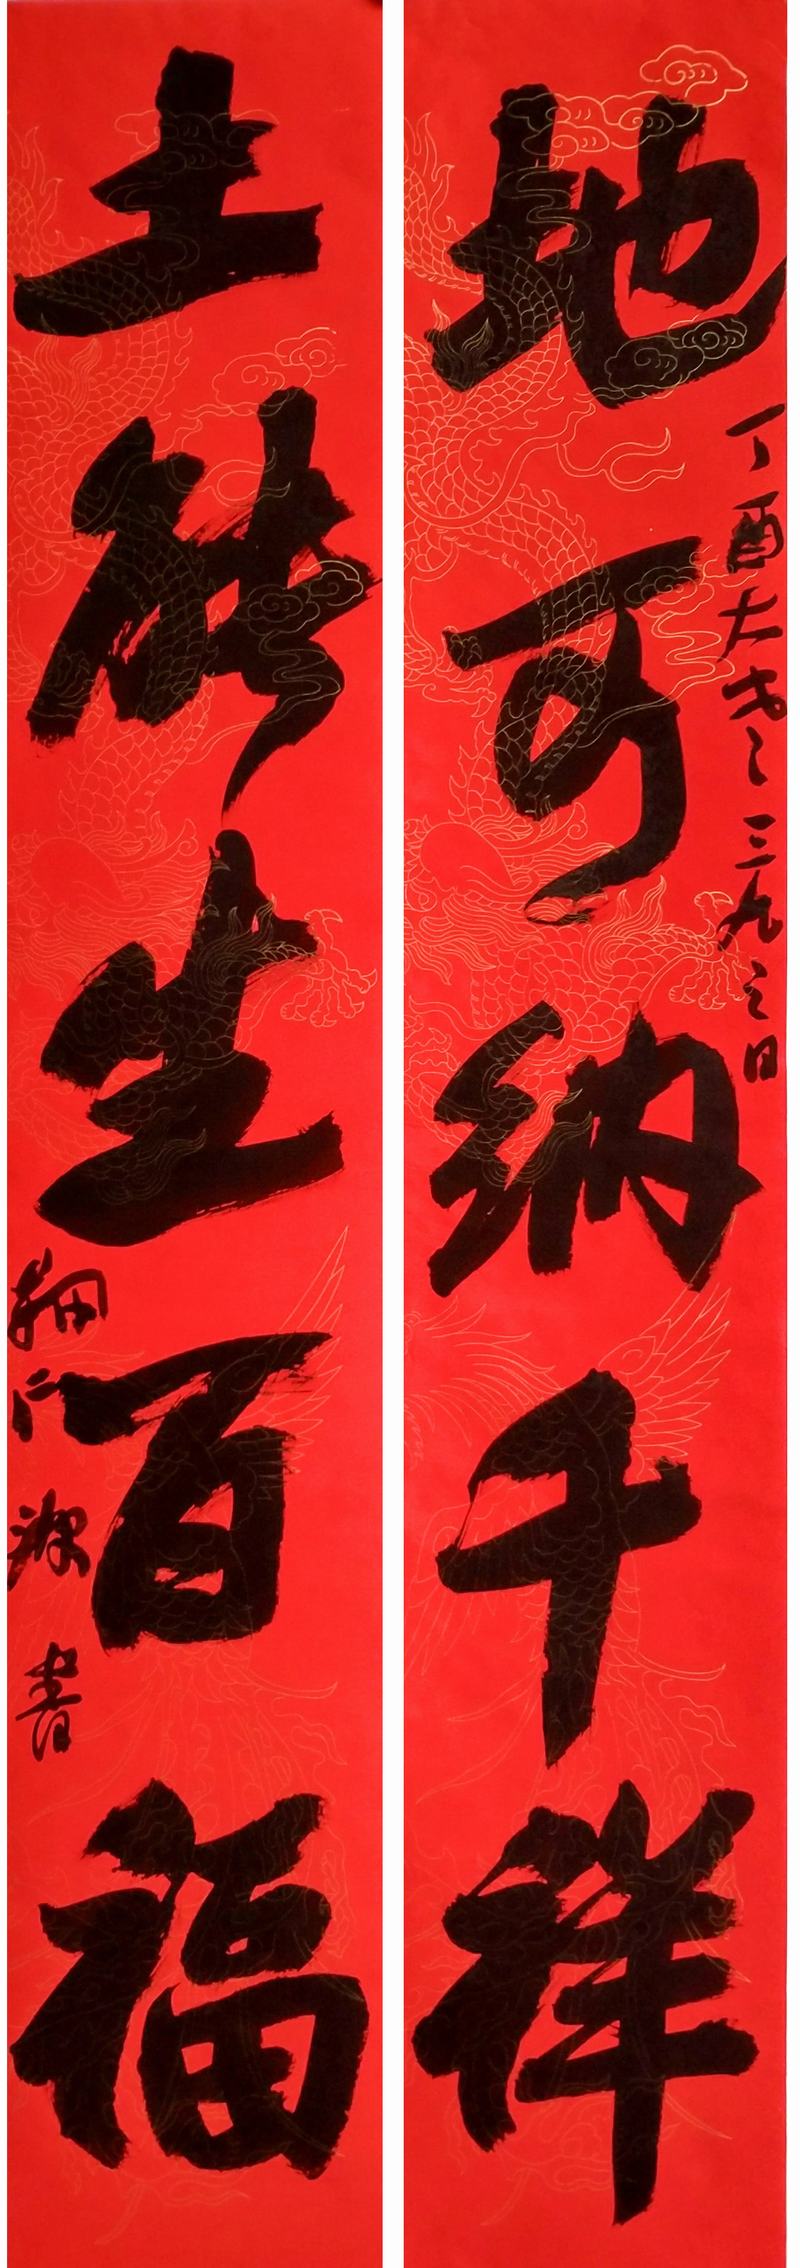 地可纳千祥
丁酉大寒之三九之日
土能生百福
书